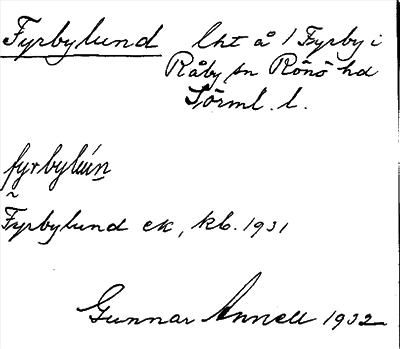 Fyrbylund lht å 1 Fyrby i
Råby sn Rönö hd
Sörml. l.
fyrbylún
Fyrbylund ek, kb. 1931
Gunnar Annell 1932